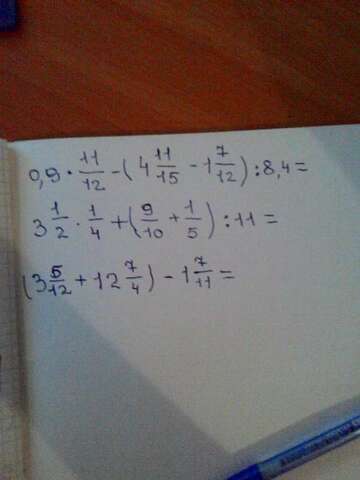 0,9 · 11/12 - (4 11/15 - 1 7/12) : 8,4 =
3 1/2 · 1/4 + (9/10 + 1/5) : 11 =
(3 5/12 + 12 7/4) - 1 7/11 =